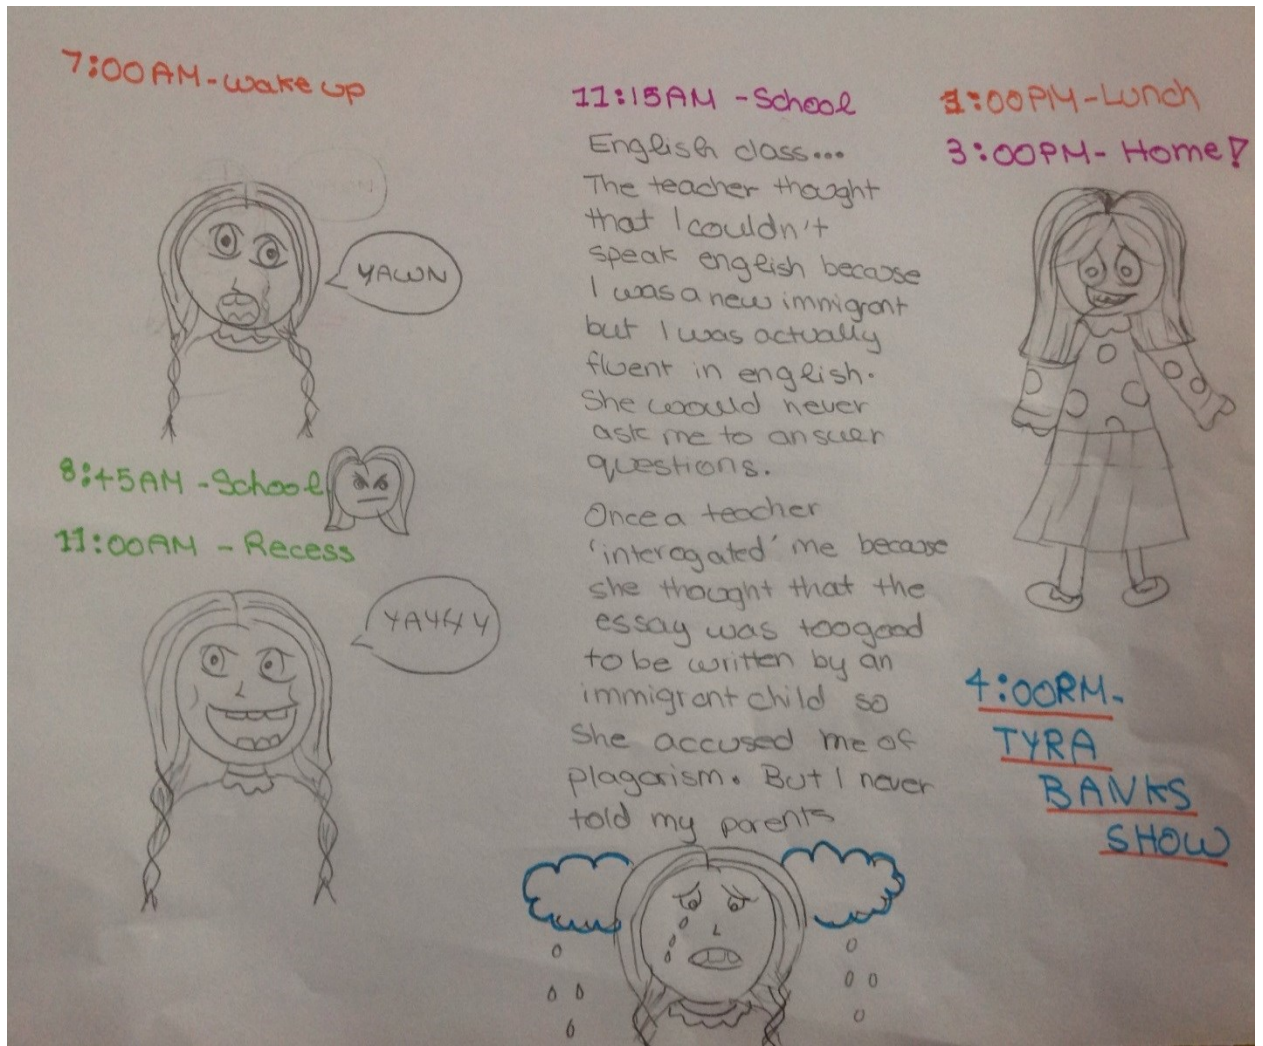 7:00AM-wake up
YAWN
8:45AM-School
11:00AM - Recess
YAYYY
11:15AM - School
English class...
The teacher thought
that I couldn't
speak english because
I was a new immigrant
but I was actually
fluent in english.
She would never
ask me to answer
questions.
Once a teacher
'interogated' me because
she thought that the
essay was too good
to be written by an
immigrant child so
she accused me of
plagarism. But I never
told my parents
1:00PM-Lunch
3:00PM- Home!
4:00PM-
TYRA
BANKS
SHOW